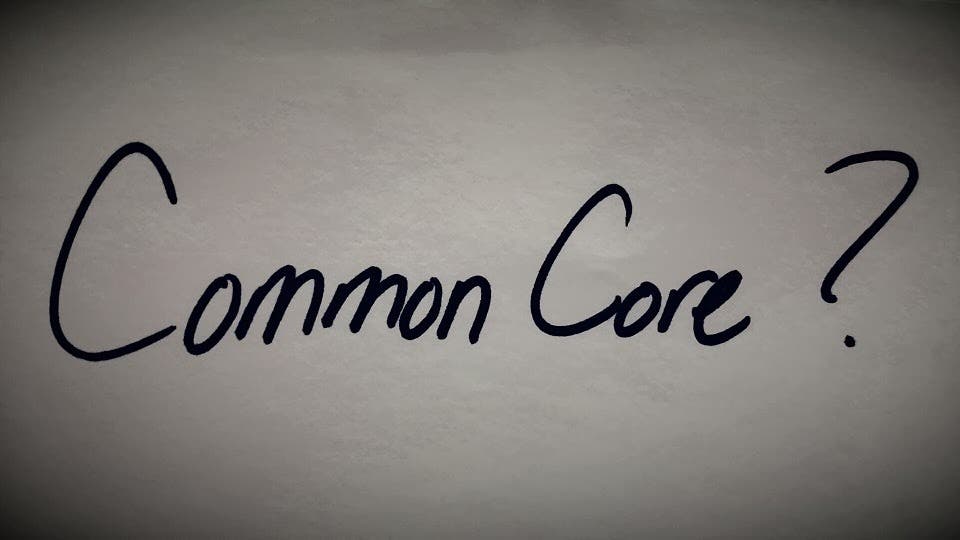 Common Core ?